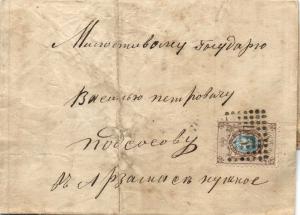 Милостивому Государю
Василью петровичу
подсосову
Въ Арзамасъ нужное